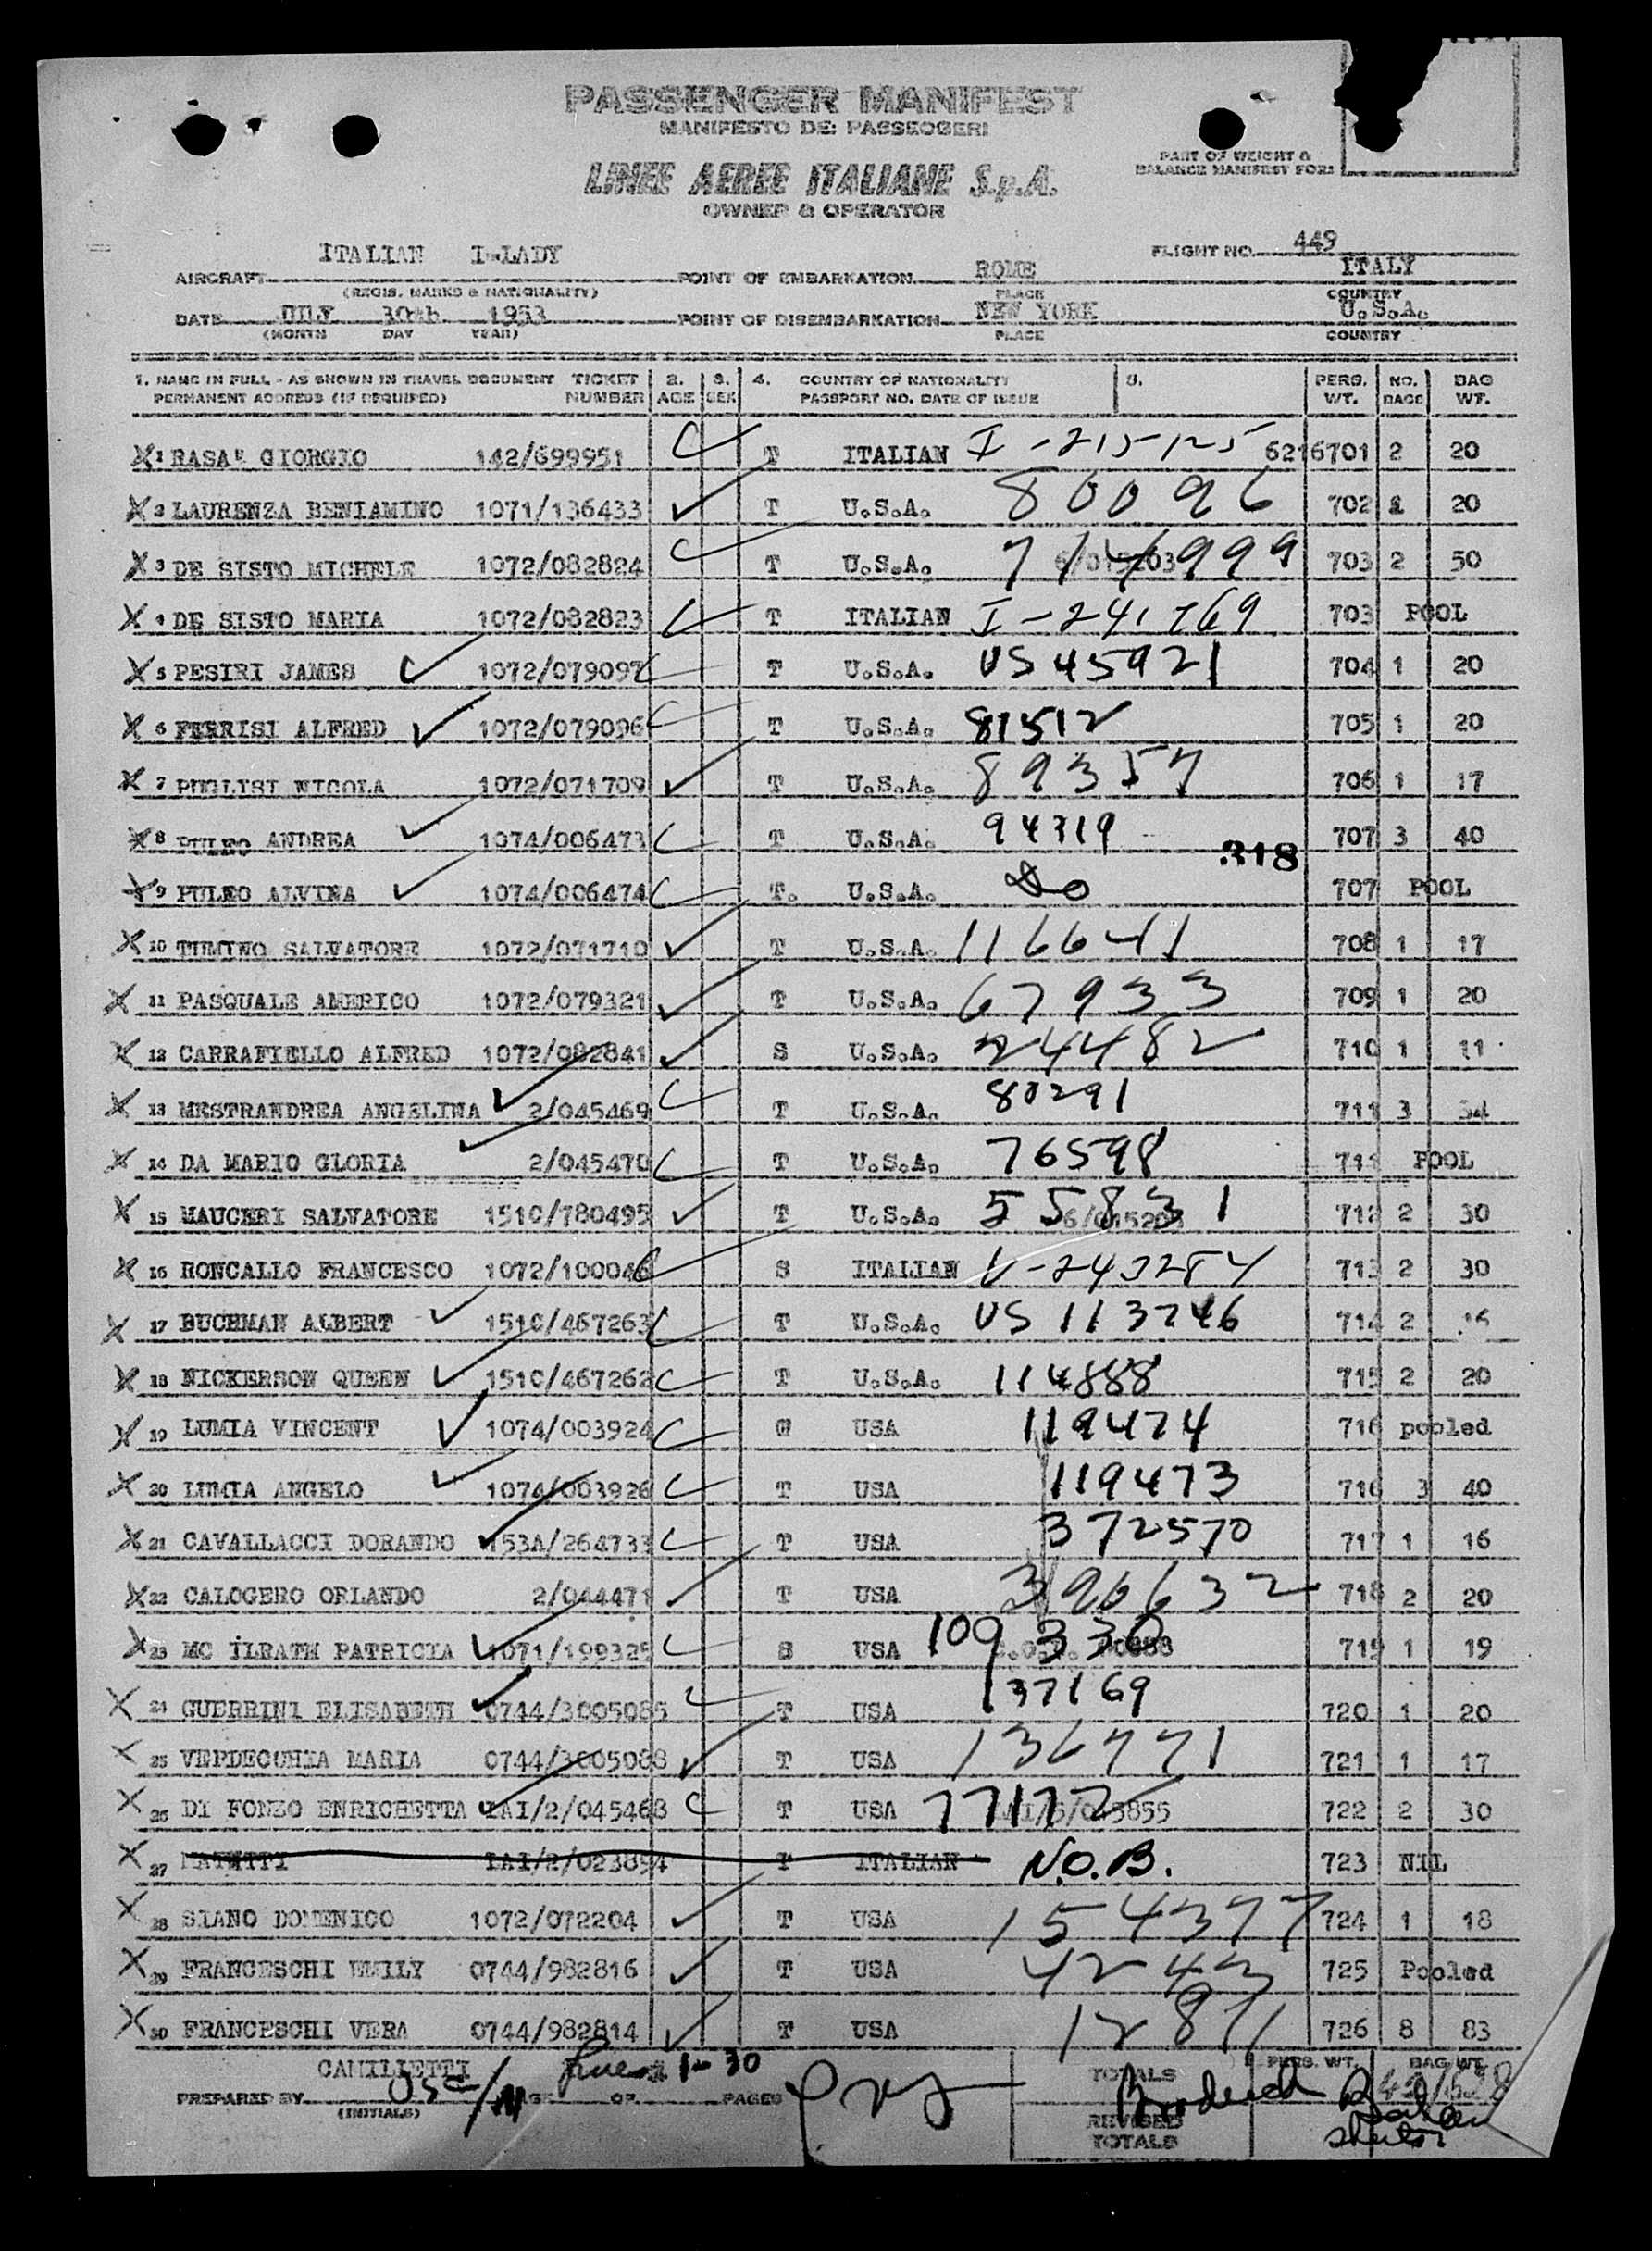 PASSENGER MANIFEST
MANIFESTO DEI PASSEGGERI
LINEE AEREE ITALIANE S.p.A.
OWNER & OPERATOR
PART OF WEIGHT &
BALANCE MANIFEST FORM
FLIGHT NO. 449
AIRCRAFT ITALIAN I-LADY POINT OF EMBARKATION ROME ITALY
(REGIS. MARKS & NATIONALITY) PLACE COUNTRY
DATE JULY 30th 1953 POINT OF DISEMBARKATION NEW YORK U.S.A.
(MONTH DAY YEAR) PLACE COUNTRY
1. NAME IN FULL - AS SHOWN IN TRAVEL DOCUMENT TICKET 2. 3. 4. COUNTRY OF NATIONALITY 5. PERS. NO. BAG
PERMANENT ADDRESS (IF REQUIRED) NUMBER AGE SEX PASSPORT NO. DATE OF ISSUE WT. BAGS WT.
1 RASA' GIORGIO 142/699951 T ITALIAN I-215125 6216701 2 20
2 LAURENZA BENIAMINO 1071/136433 T U.S.A. 80096 702 1 20
3 DE SISTO MICHELE 1072/082824 T U.S.A. 714999 703 2 50
4 DE SISTO MARIA 1072/082823 T ITALIAN I-241769 703 POOL
5 PESIRI JAMES 1072/079097 T U.S.A. US 45921 704 1 20
6 FERRISI ALFRED 1072/079096 T U.S.A. 81512 705 1 20
7 PUGLISI NICOLA 1072/071709 T U.S.A. 89357 706 1 17
8 PULEO ANDREA 1074/006473 T U.S.A. 94319 707 3 40
.318
9 PULEO ALVINA 1074/006474 T. U.S.A. do 707 POOL
10 TUMINO SALVATORE 1072/071710 T U.S.A. 116641 708 1 17
11 PASQUALE AMERICO 1072/079321 T U.S.A. 67933 709 1 20
12 CARRAFIELLO ALFRED 1072/082841 S U.S.A. 24482 710 1 11
13 MESTRANDREA ANGELINA 2/045469 T U.S.A. 80291 711 3 54
14 DA MARIO GLORIA 2/045470 T U.S.A. 76598 711 POOL
15 MAUCERI SALVATORE 151C/780495 T U.S.A. 55831 712 2 30
16 RONCALLO FRANCESCO 1072/100046 S ITALIAN 713 2 30
17 BUCHMAN ALBERT 151C/467263 T U.S.A. US 113746 714 2
18 NICKERSON QUEEN 151C/467262 T U.S.A. 114888 715 2 20
19 LUMIA VINCENT 1074/003924 G USA 119474 716 pooled
20 LUMIA ANGELO 1074/003926 T USA 119473 716 3 40
21 CAVALLACCI DORANDO 153A/264733 T USA 372570 717 1 16
22 CALOGERO ORLANDO 2/044471 T USA 396632 718 2 20
23 MC ILRATH PATRICIA 1071/199325 S USA 109330 719 1 19
24 GUERRINI ELISABETH 0744/3005085 T USA 137169 720 1 20
25 VERDECCHIA MARIA 0744/3005088 T USA 136771 721 1 17
26 DI FONZO ENRICHETTA LAI/2/045468 T USA 77172 722 2 30
27 LAI/2/023894 T ITALIAN N.O.B. 723 NIL
28 SIANO DOMENICO 1072/072204 T USA 154377 724 1 18
29 FRANCESCHI EMILY 0744/982816 T USA 4243 725 Pooled
30 FRANCESCHI VERA 0744/982814 T USA 12871 726 8 83
CAMILLETTI 1 - 30
PREPARED BY PAGE OF PAGES
(INITIALS)
TOTALS PERS. WT. BAG WT.
REVISED
TOTALS